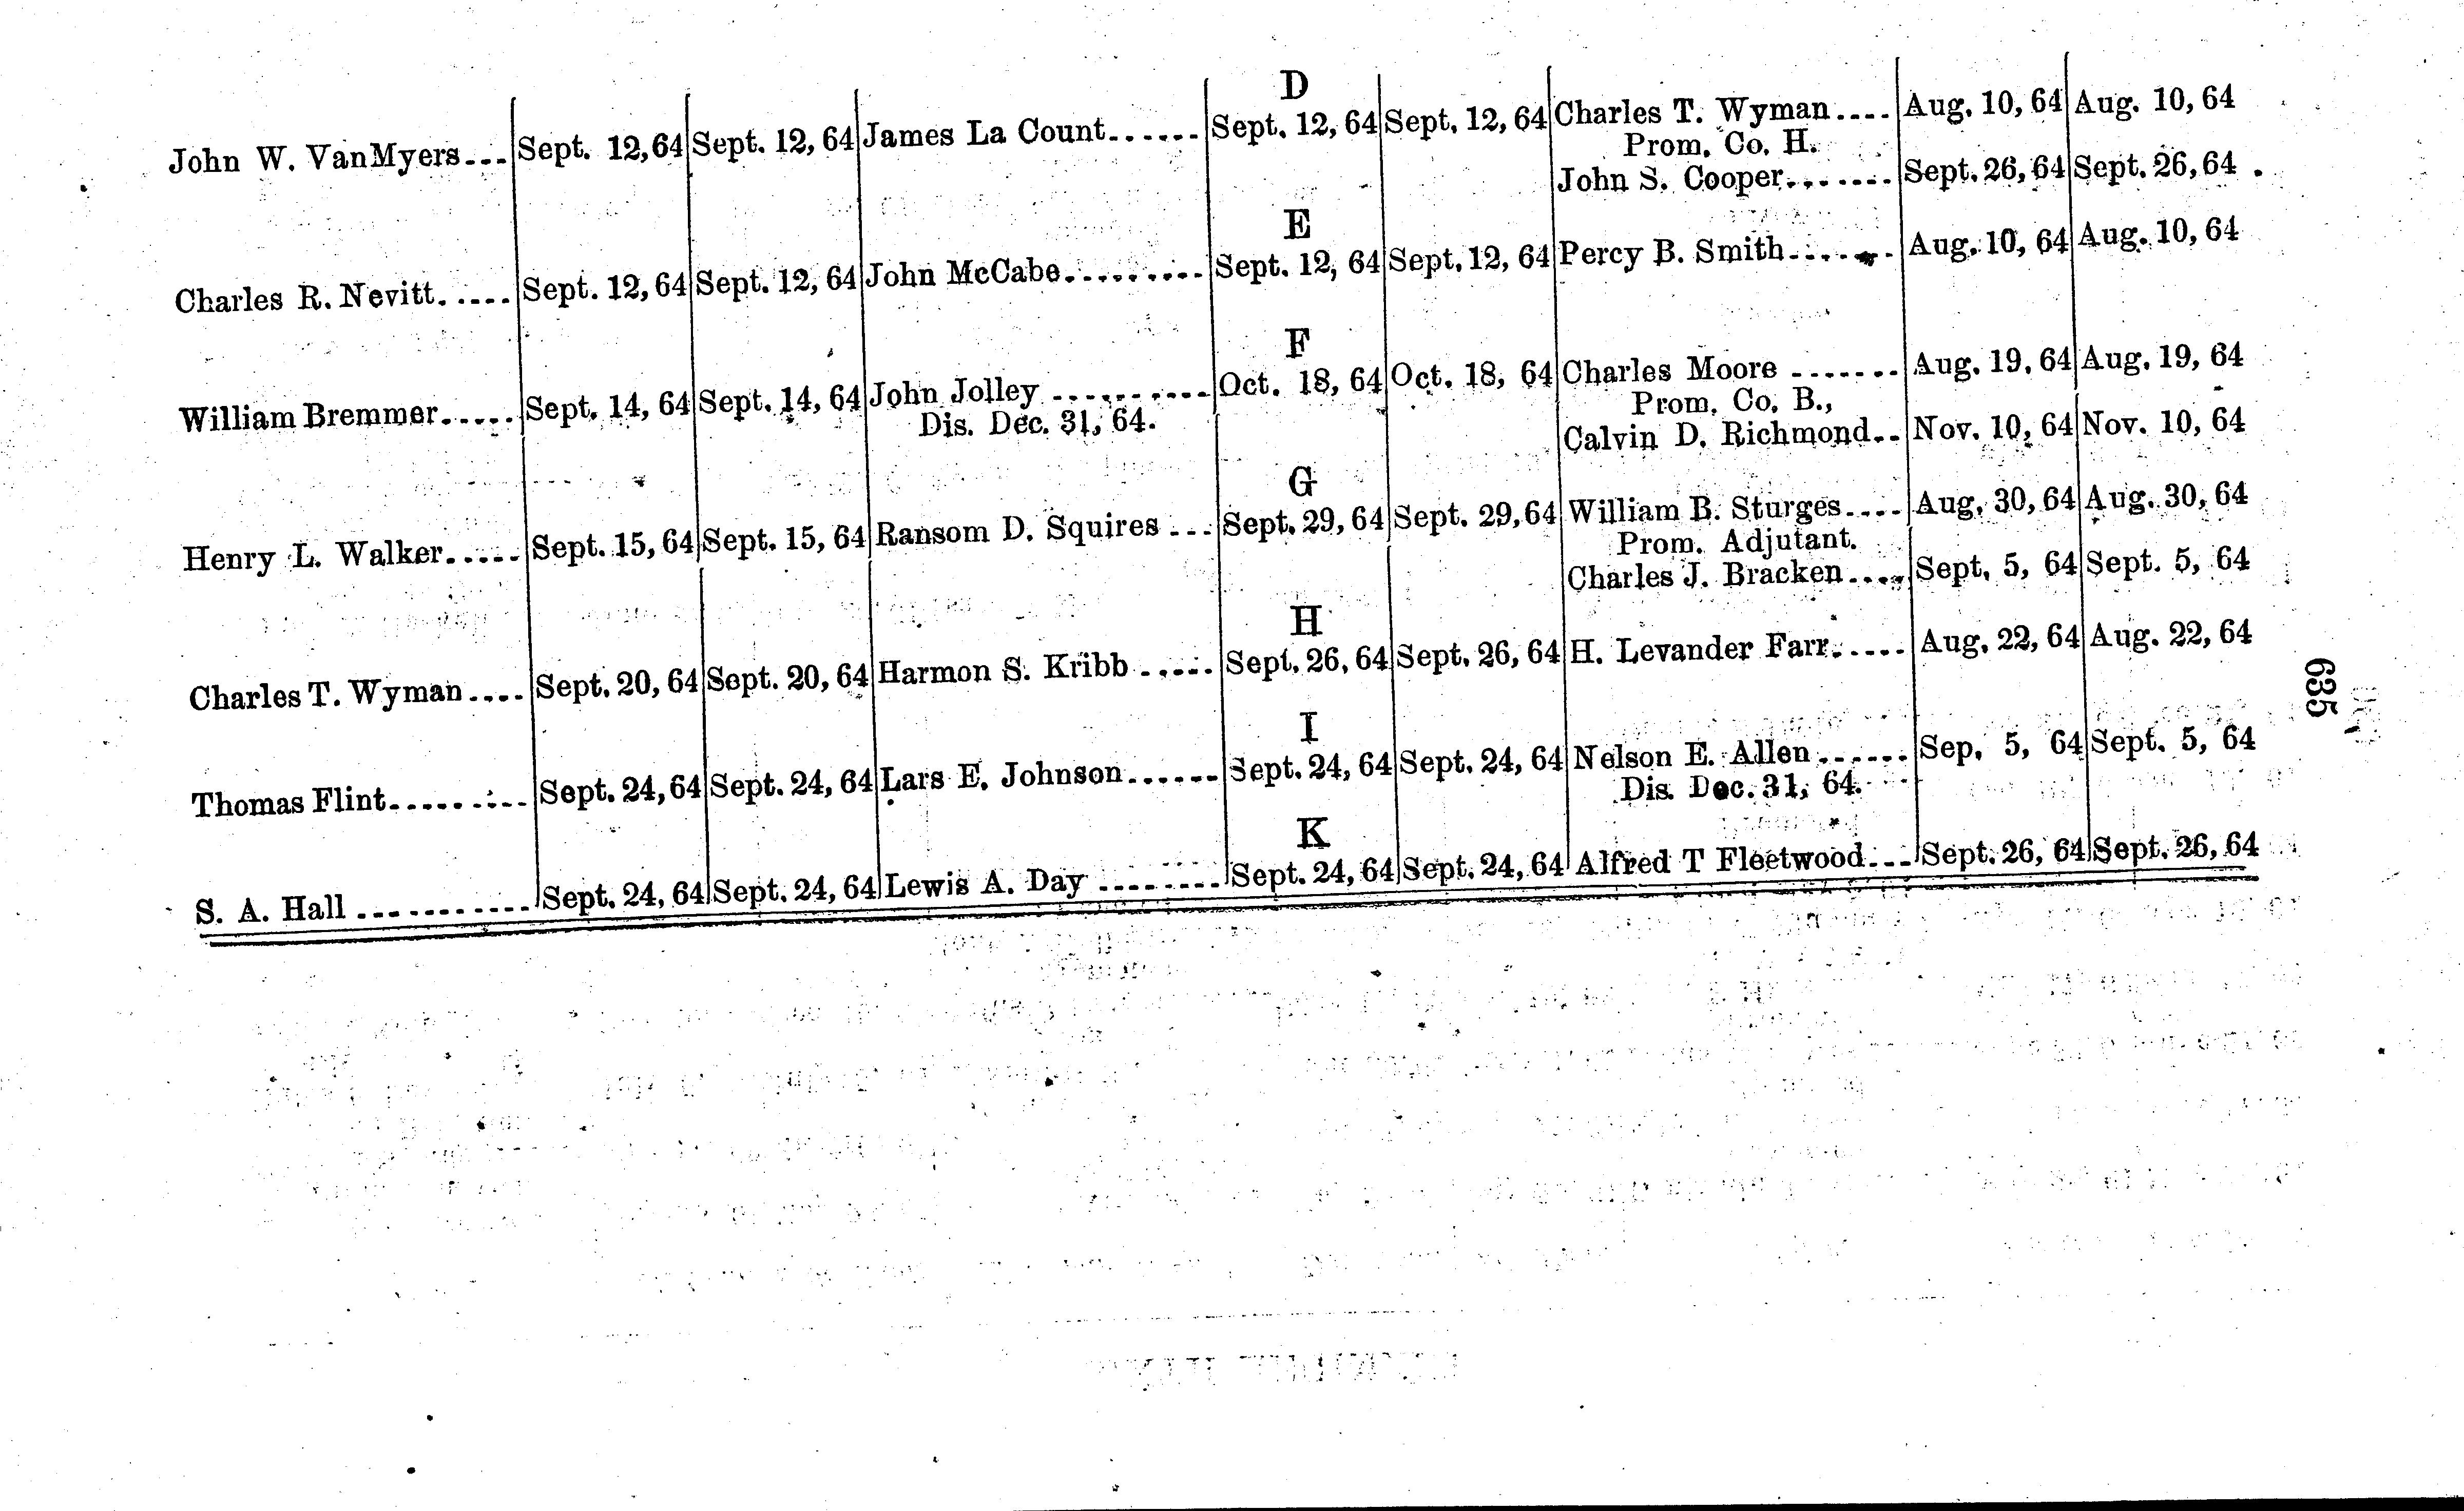 D
John W. VanMyers... Sept. 12, 64 Sept. 12, 64 James La Count...... Sept. 12, 64 Sept. 12, 64 Charles T. Wyman.... Aug. 10, 64 Aug. 10, 64
Prom. Co. H.
John S. Cooper....... Sept. 26, 64 Sept. 26, 64
E
Charles R. Nevitt..... Sept. 12, 64 Sept. 12, 64 John McCabe......... Sept. 12, 64 Sept. 12, 64 Percy B. Smith...... Aug. 10, 64 Aug. 10, 64
F
William Bremmer..... Sept. 14, 64 Sept. 14, 64 John Jolley .......... Oct. 18, 64 Oct. 18, 64 Charles Moore ....... Aug. 19, 64 Aug. 19, 64
Dis. Dec. 31, 64. Prom. Co. B.,
Calvin D. Richmond.. Nov. 10, 64 Nov. 10, 64
G
Henry L. Walker..... Sept. 15, 64 Sept. 15, 64 Ransom D. Squires ... Sept. 29, 64 Sept. 29, 64 William B. Sturges.... Aug. 30, 64 Aug. 30, 64
Prom. Adjutant.
Charles J. Bracken.... Sept. 5, 64 Sept. 5, 64
H
Charles T. Wyman.... Sept. 20, 64 Sept. 20, 64 Harmon S. Kribb ..... Sept. 26, 64 Sept. 26, 64 H. Levander Farr..... Aug. 22, 64 Aug. 22, 64
I
Thomas Flint......... Sept. 24, 64 Sept. 24, 64 Lars E. Johnson...... Sept. 24, 64 Sept. 24, 64 Nelson E. Allen...... Sep. 5, 64 Sept. 5, 64
Dis. Dec. 31, 64.
K
S. A. Hall ............ Sept. 24, 64 Sept. 24, 64 Lewis A. Day ........ Sept. 24, 64 Sept. 24, 64 Alfred T Fleetwood... Sept. 26, 64 Sept. 26, 64
635